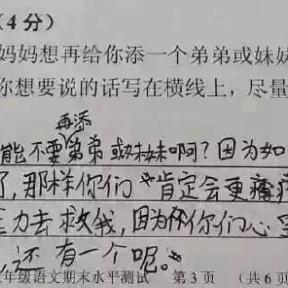 (4分)
妈妈想再给你添一个弟弟或妹妹
你想要说的话写在横线上,尽量
再添
能不要弟弟或妹妹啊?因为如
了,那样你们肯定会更
力去救我,因为你们心里
,还有一个呢。
年级语文期末水平测试 第3页 (共6